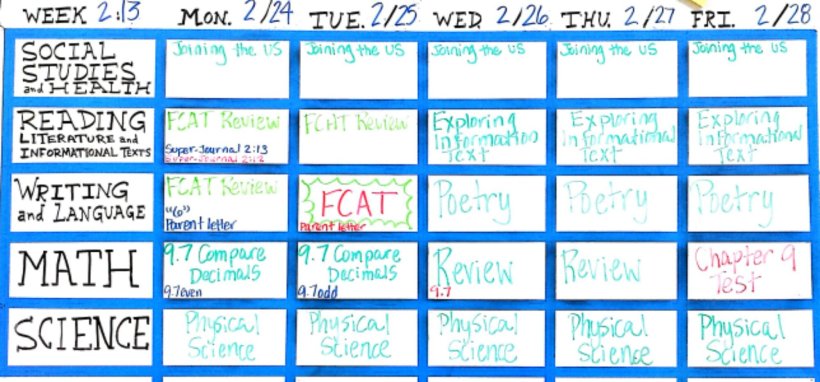 WEEK 2:13 MON. 2/24 TUE. 2/25 WED. 2/26 THU. 2/27 FRI. 2/28
SOCIAL
STUDIES
and HEALTH
Joining the US
Joining the US
Joining the US
Joining the US
Joining the US
READING
LITERATURE and
INFORMATIONAL TEXTS
FCAT Review
Super-Journal 2:13
Super-Journal 2:13
FCAT Review
Exploring
Informational
Text
Exploring
Informational
Text
Exploring
Informational
Text
WRITING
and LANGUAGE
FCAT Review
Parent letter
FCAT
Parent letter
Poetry
Poetry
Poetry
MATH
9.7 Compare
Decimals
9.7 even
9.7 Compare
Decimals
9.7 odd
Review
9.7
Review
Chapter 9
Test
SCIENCE
Physical
Science
Physical
Science
Physical
Science
Physical
Science
Physical
Science